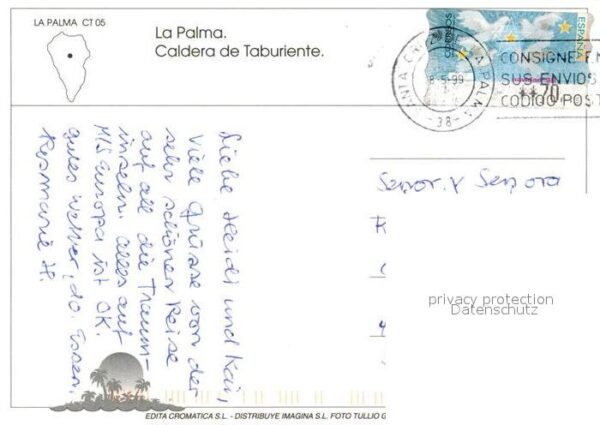 LA PALMA CT 05
La Palma.
Caldera de Taburiente.
CORREOS
ESPAÑA
LA PALMA
8-5-99
-38-
CONSIGNE EN
SUS ENVIOS
CODIGO POST
**70
Liebe Heidi und Kai,
Viele Grüsse von der
sehr schönen Reise
auf all die Traum-
inseln. Alles auf
M/S Europa ist OK.
gutes Wetter, do. Essen.
Rosmarie H.
Senor. y Senora
privacy protection
Datenschutz
EDITA CROMATICA S.L. - DISTRIBUYE IMAGINA S.L. FOTO TULLIO G